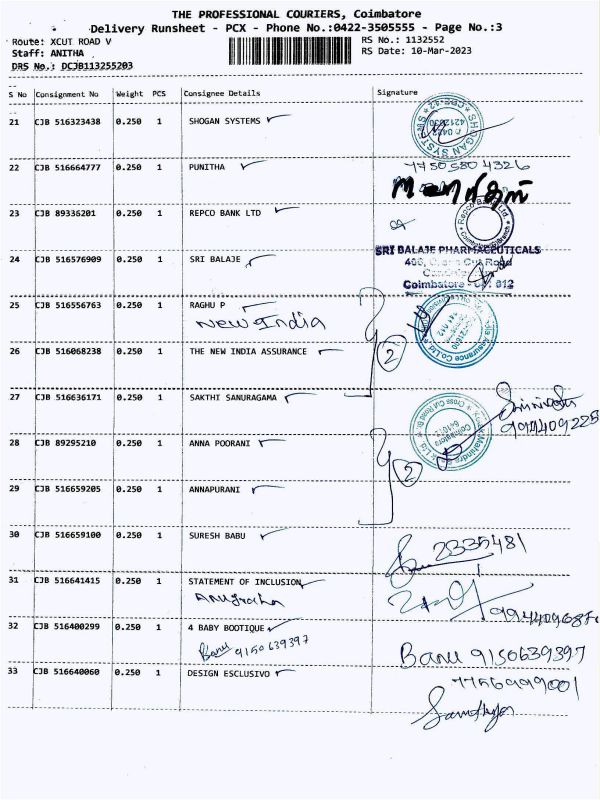 THE PROFESSIONAL COURIERS, Coimbatore
Delivery Runsheet - PCX - Phone No.:0422-3505555 - Page No.:3
Route: XCUT ROAD V
RS No.: 1132552
Staff: ANITHA
RS Date: 10-Mar-2023
DRS No.: DCJB113255203
S No Consignment No Weight PCS Consignee Details Signature
21 CJB 516323438 0.250 1 SHOGAN SYSTEMS
22 CJB 516664777 0.250 1 PUNITHA
23 CJB 89336201 0.250 1 REPCO BANK LTD
24 CJB 516576909 0.250 1 SRI BALAJE
SRI BALAJE PHARMACEUTICALS
Coimbatore
25 CJB 516556763 0.250 1 RAGHU P
New India
2
26 CJB 516068238 0.250 1 THE NEW INDIA ASSURANCE
27 CJB 516636171 0.250 1 SAKTHI SANURAGAMA
28 CJB 89295210 0.250 1 ANNA POORANI
2
29 CJB 516659205 0.250 1 ANNAPURANI
30 CJB 516659100 0.250 1 SURESH BABU
2335481
31 CJB 516641415 0.250 1 STATEMENT OF INCLUSION
Anugraha
32 CJB 516400299 0.250 1 4 BABY BOOTIQUE
Banu 9150639397
Banu 9150639397
33 CJB 516640060 0.250 1 DESIGN ESCLUSIVO
7756999001
Sandhya